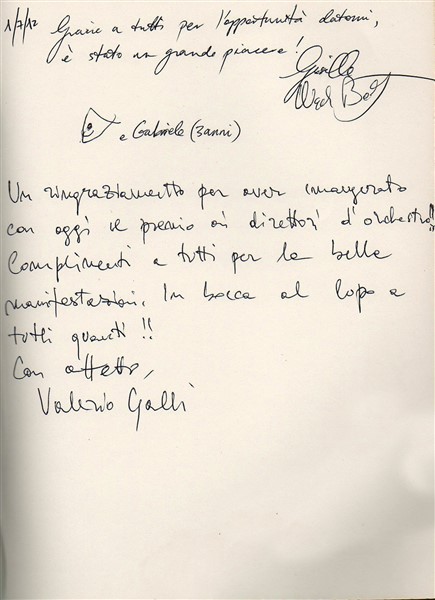 1/7/12 Grazie a tutti per l'opportunità datami,
è stato un grande piacere!
e Gabriele (3 anni)
Un ringraziamento per aver inaugurato
con oggi il premio ai direttori d'orchestra!!
Complimenti a tutti per la bella
manifestazione. In bocca al lupo a
tutti quanti!!
Con affetto,
Valerio Galli